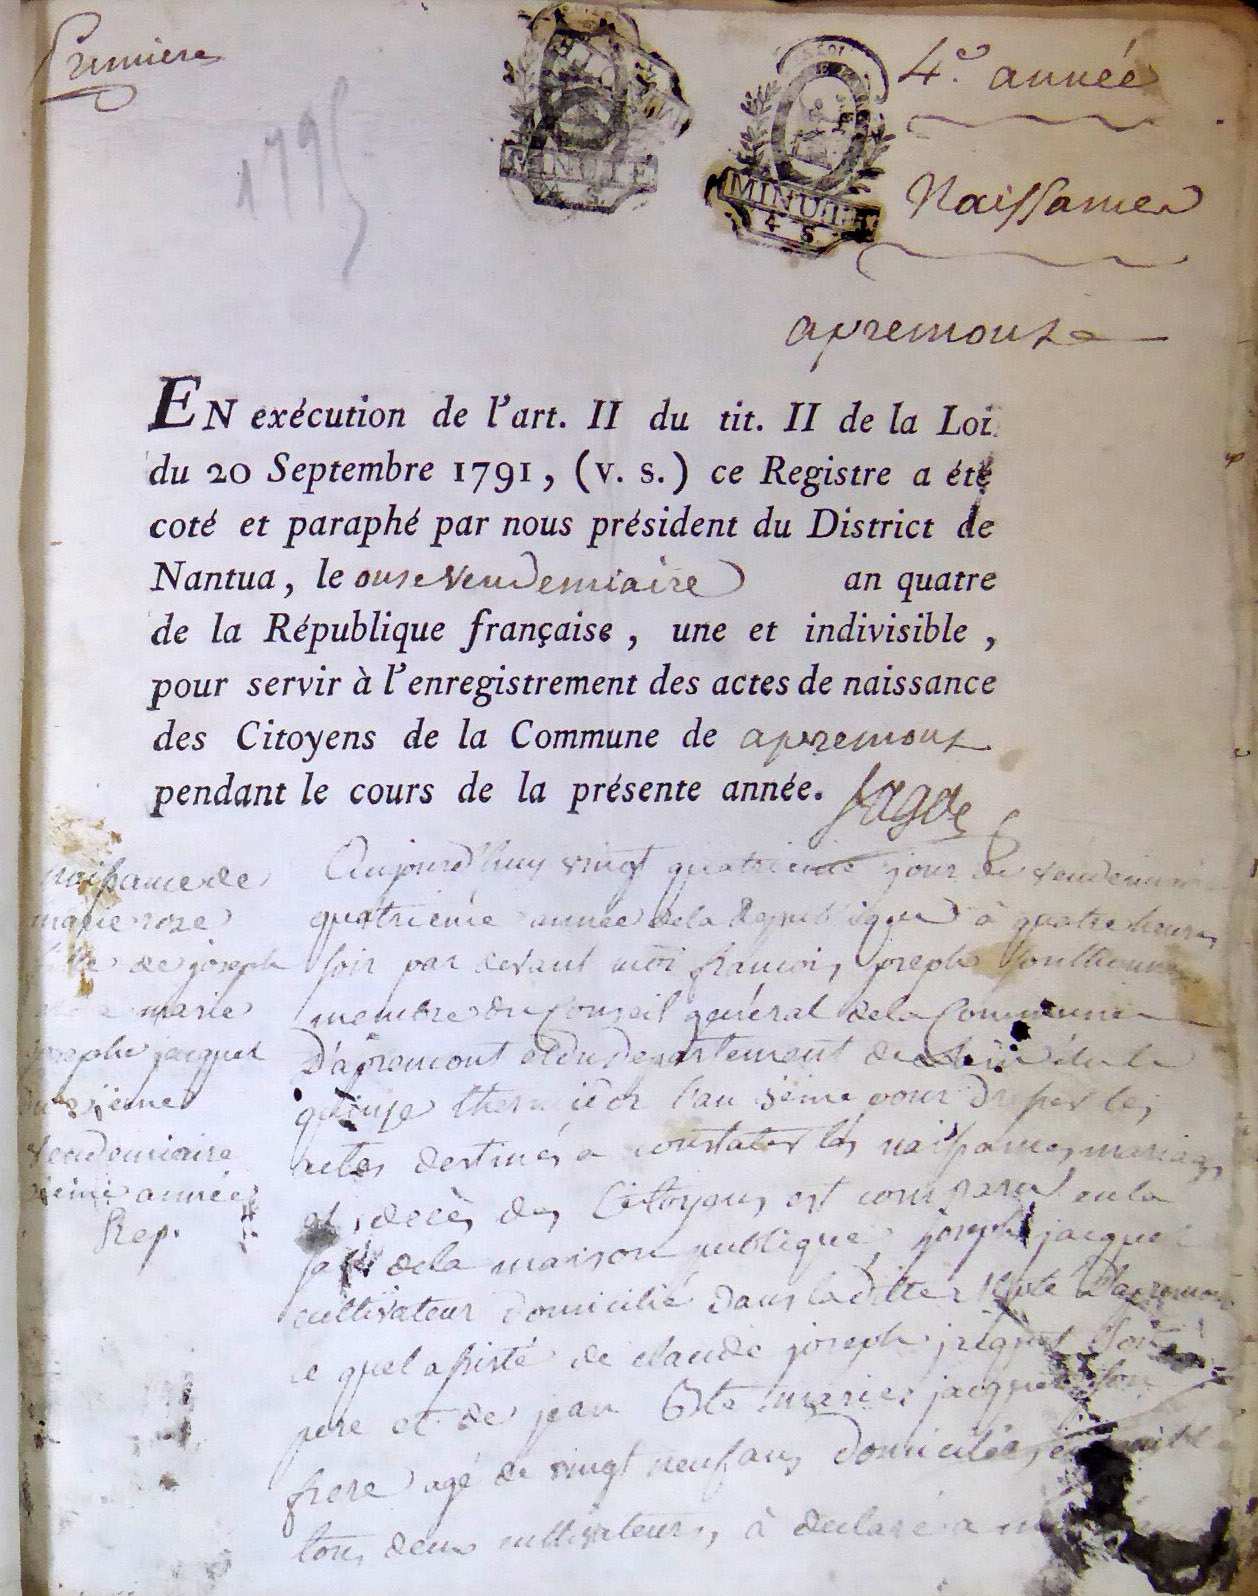 Première
1795
MINUTE
MINUTE
4 S
4.e année
Naissances
apremont
EN exécution de l'art. II du tit. II de la Loi
du 20 Septembre 1791, (v. s.) ce Registre a été
coté et paraphé par nous président du District de
Nantua, le onse vendemiaire an quatre
de la République française, une et indivisible,
pour servir à l'enregistrement des actes de naissance
des Citoyens de la Commune de apremont
pendant le cours de la présente année.
naissance de
marie roze
fille de joseph
marie
josephe jacquet
vendemiaire
année
Rep.
Aujourd'huy vingt quatrieme jour de vendemiaire
quatrieme année de la Republique à quatre heures
soir par devant moi françois joseph
membre du Conseil général de la Commune
D'apremont et du departement de
quinze thermidor l'an 3ème pour dresser les
actes destinés a constater les naissances, mariages
et decès des Citoyens, est comparu en la
salle de la maison publique, joseph jacquet
cultivateur domicilié dans la ditte D'apremont
le quel assisté de claude joseph jacquet son
pere et de jean Bte marie jacquet son
frere agé de vingt neuf ans domiciliés
tous deux cultivateurs, à declaré a